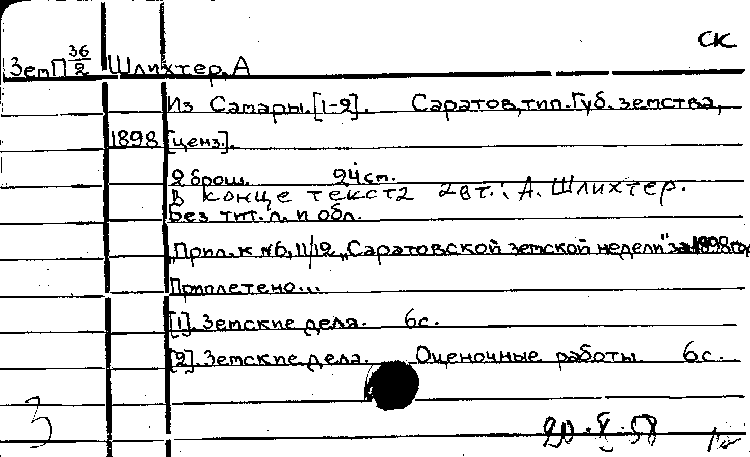 СК
ЗемП 36/2 Шлихтер, А
Из Самары. [1-2]. Саратов, тип. Губ. земства,
1898 [ценз.].
2 брош. 24 см.
В конце текста авт.: А. Шлихтер.
Без тит. л. и обл.
„Прил. к №6, 11/12 „Саратовской земской недели" за 1898 год
Приплетено...
[1]. Земские дела. 6с.
[2]. Земские дела. Оценочные работы. 6с.
3
20.X.58